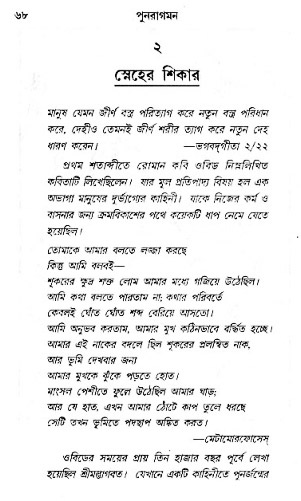 ৬৮
পুনরাগমন
২
স্নেহের শিকার
মানুষ যেমন জীর্ণ বস্ত্র পরিত্যাগ করে নতুন বস্ত্র পরিধান
করে, দেহীও তেমনই জীর্ণ শরীর ত্যাগ করে নতুন দেহ
ধারণ করেন। —ভগবদ্গীতা ২/২২
প্রথম শতাব্দীতে রোমান কবি ওবিড নিম্নলিখিত
কবিতাটি লিখেছিলেন। যার মূল প্রতিপাদ্য বিষয় হল এক
অভাগা মানুষের দুর্ভাগ্যের কাহিনী। যাকে নিজের কর্ম ও
বাসনার জন্য ক্রমবিকাশের পথে কয়েকটি ধাপ নেমে যেতে
হয়েছিল।
তোমাকে আমার বলতে লজ্জা করছে
কিন্তু আমি বলবই—
শূকরের ক্ষুদ্র শক্ত লোম আমার মধ্যে গজিয়ে উঠেছিল।
আমি কথা বলতে পারতাম না; কথার পরিবর্তে
কেবলই ঘোঁত ঘোঁত শব্দ বেরিয়ে আসতো।
আমি অনুভব করতাম, আমার মুখ কঠিনভাবে বর্ধিত হচ্ছে।
আমার এই নাকের বদলে ছিল শূকরের প্রলম্বিত নাক,
আর ভূমি দেখবার জন্য
আমার মুখকে ঝুঁকে পড়তে হোত।
মাংসল পেশীতে ফুলে উঠেছিল আমার ঘাড়;
আর যে হাত, এখন আমার ঠোঁটে কাপ তুলে ধরছে
সেটি তখন ভূমিতে পদছাপ অঙ্কিত করত।
—মেটামোরফোসেস্
ওবিডের সময়ের প্রায় তিন হাজার বছর পূর্বে লেখা
হয়েছিল শ্রীমদ্ভাগবত। যেখানে একটি কাহিনীতে পুনর্জন্মের